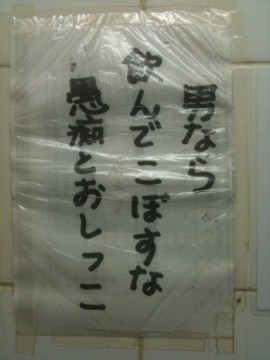 男なら
飲んでこぼすな
愚痴とおしっこ